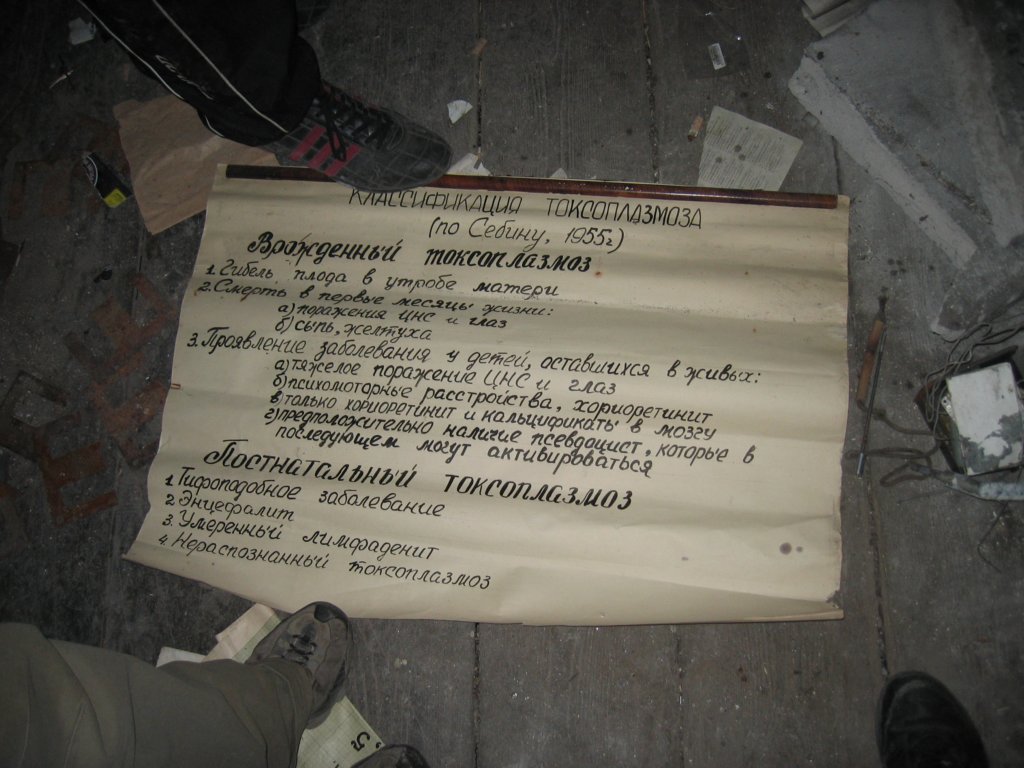 КЛАССИФИКАЦИЯ ТОКСОПЛАЗМОЗА
(по Себину, 1955г)
Врожденный токсоплазмоз
1. Гибель плода в утробе матери
2. Смерть в первые месяцы жизни:
а) поражения ЦНС и глаз
б) сыпь, желтуха
3. Проявление заболевания у детей, оставшихся в живых:
а) тяжелое поражение ЦНС и глаз
б) психомоторные расстройства, хориоретинит
в) только хориоретинит и кальцификаты в мозгу
г) предположительно наличие псевдоцист, которые в
последующем могут активироваться
Постнатальный токсоплазмоз
1 Тифоподобное заболевание
2 Энцефалит
3. Умеренный лимфаденит
4. Нераспознанный токсоплазмоз
5